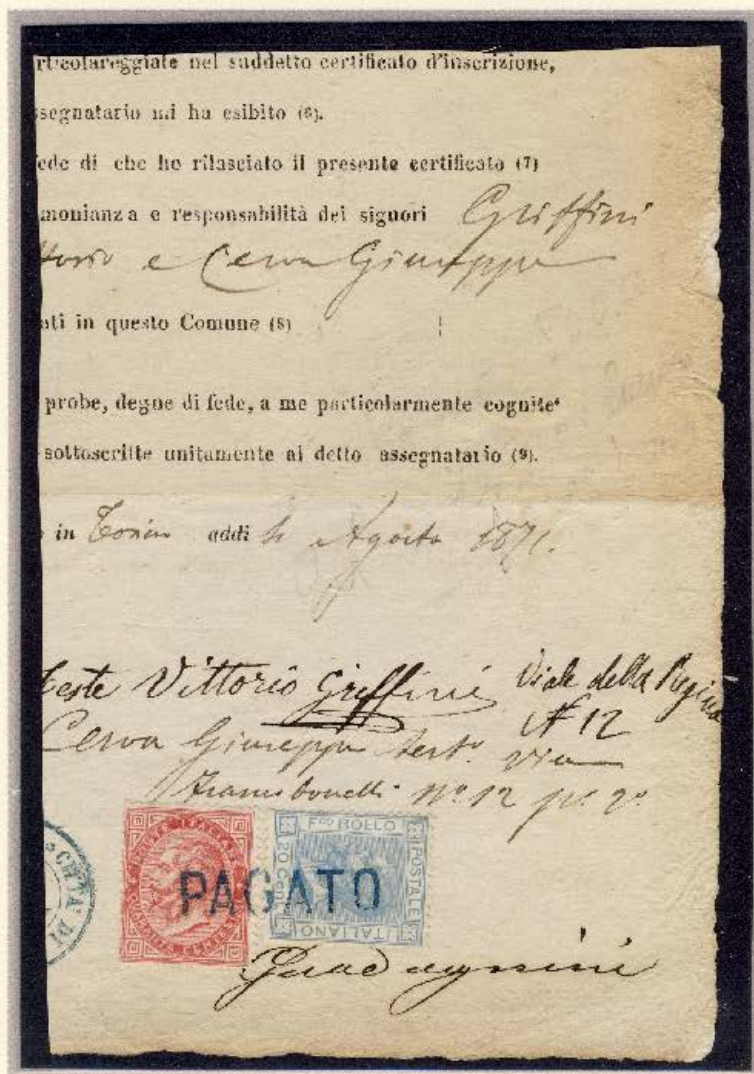 rticolareggiate nel suddetto certificato d'inscrizione,
ssegnatario mi ha esibito (6).
ede di che ho rilasciato il presente certificato (7)
monianza e responsabilità dei signori Griffini
ttorio e Cerva Giuseppe
ati in questo Comune (8)
probe, degne di fede, a me particolarmente cognite
sottoscritte unitamente al detto assegnatario (9).
in Torino addi 4 Agosto 1871.
teste Vittorio Griffini Viale della Regina
N 12
Cerva Giuseppe test. via
n° 12 p. 2°
CITTA' DI
POSTE ITALIANE
QUARANTA CENTESIMI
Fco BOLLO
POSTALE
ITALIANO
20 Cent
PAGATO
Guadagnini